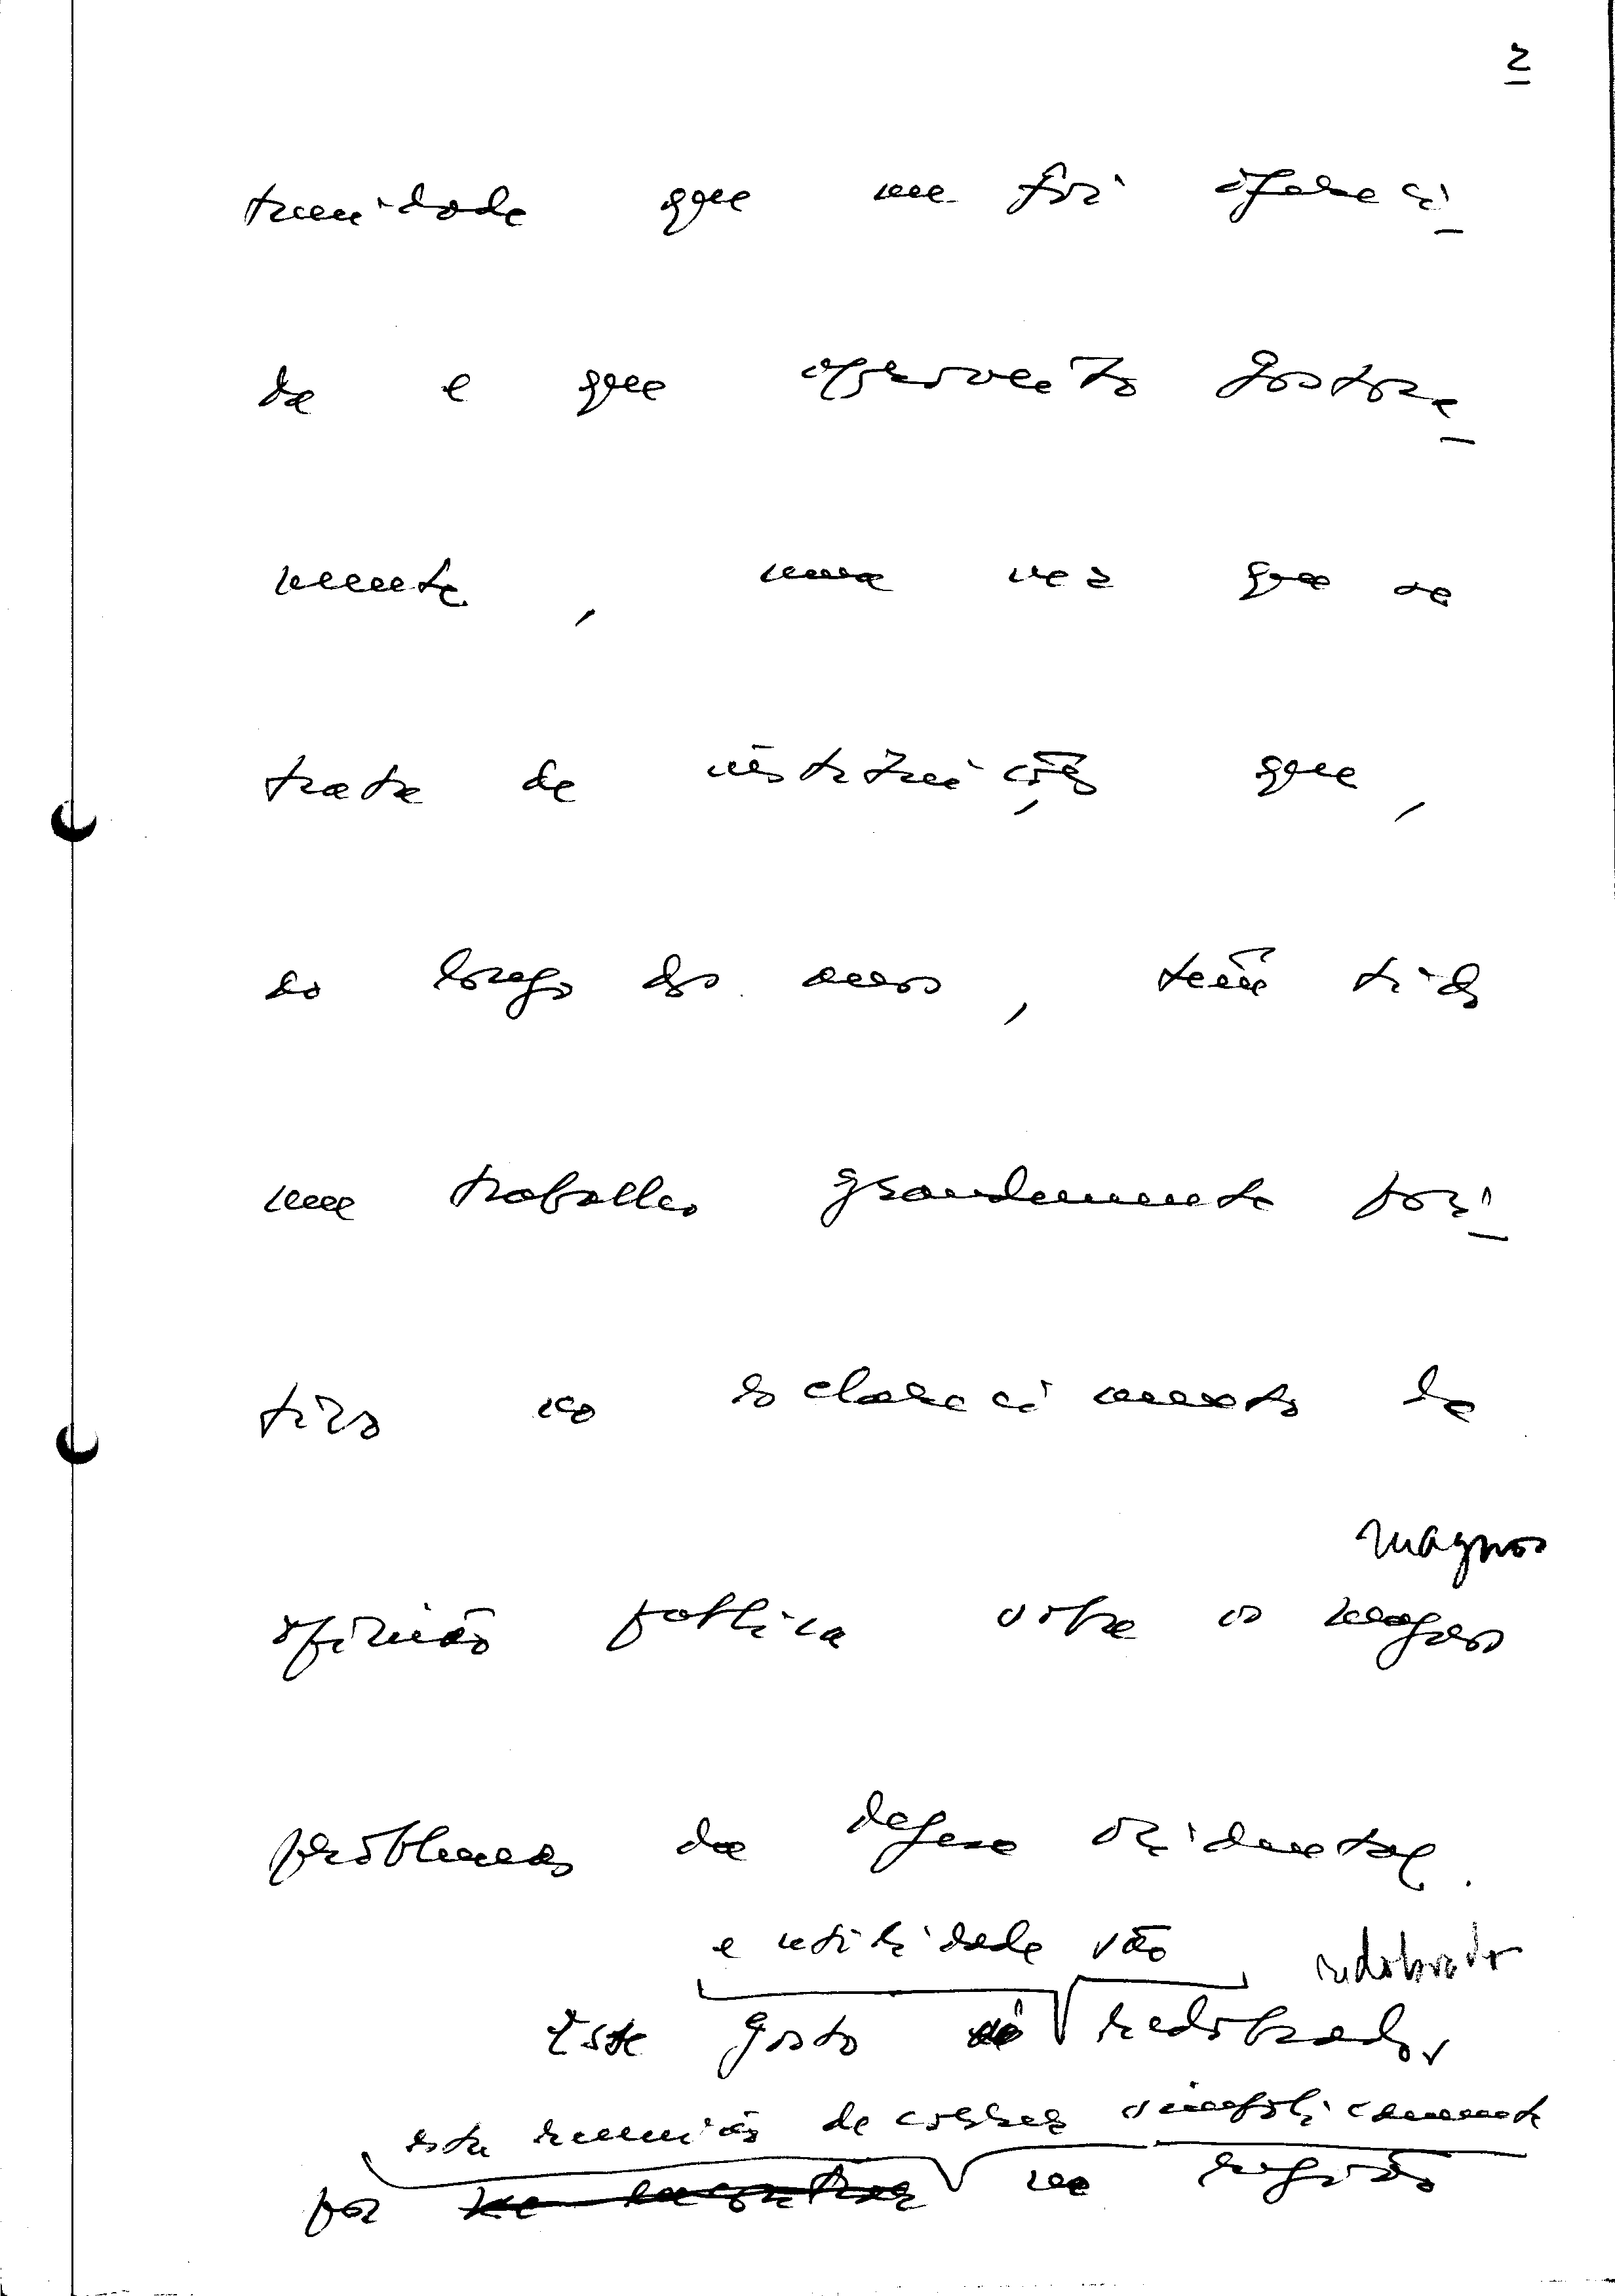 2
tunidade que me foi ofereci
da e que aproveito gostosa
mente, uma vez que se
trata de instituições que,
ao longo dos anos, têm tido
um trabalho grandemente posi
tivo no esclarecimento da
magnos
opinião pública sobre os magnos
problemas da defesa ocidental.
e utilidade são redobrados
Este gosto é redobrado,
esta reunião de simbolicamente
por na região